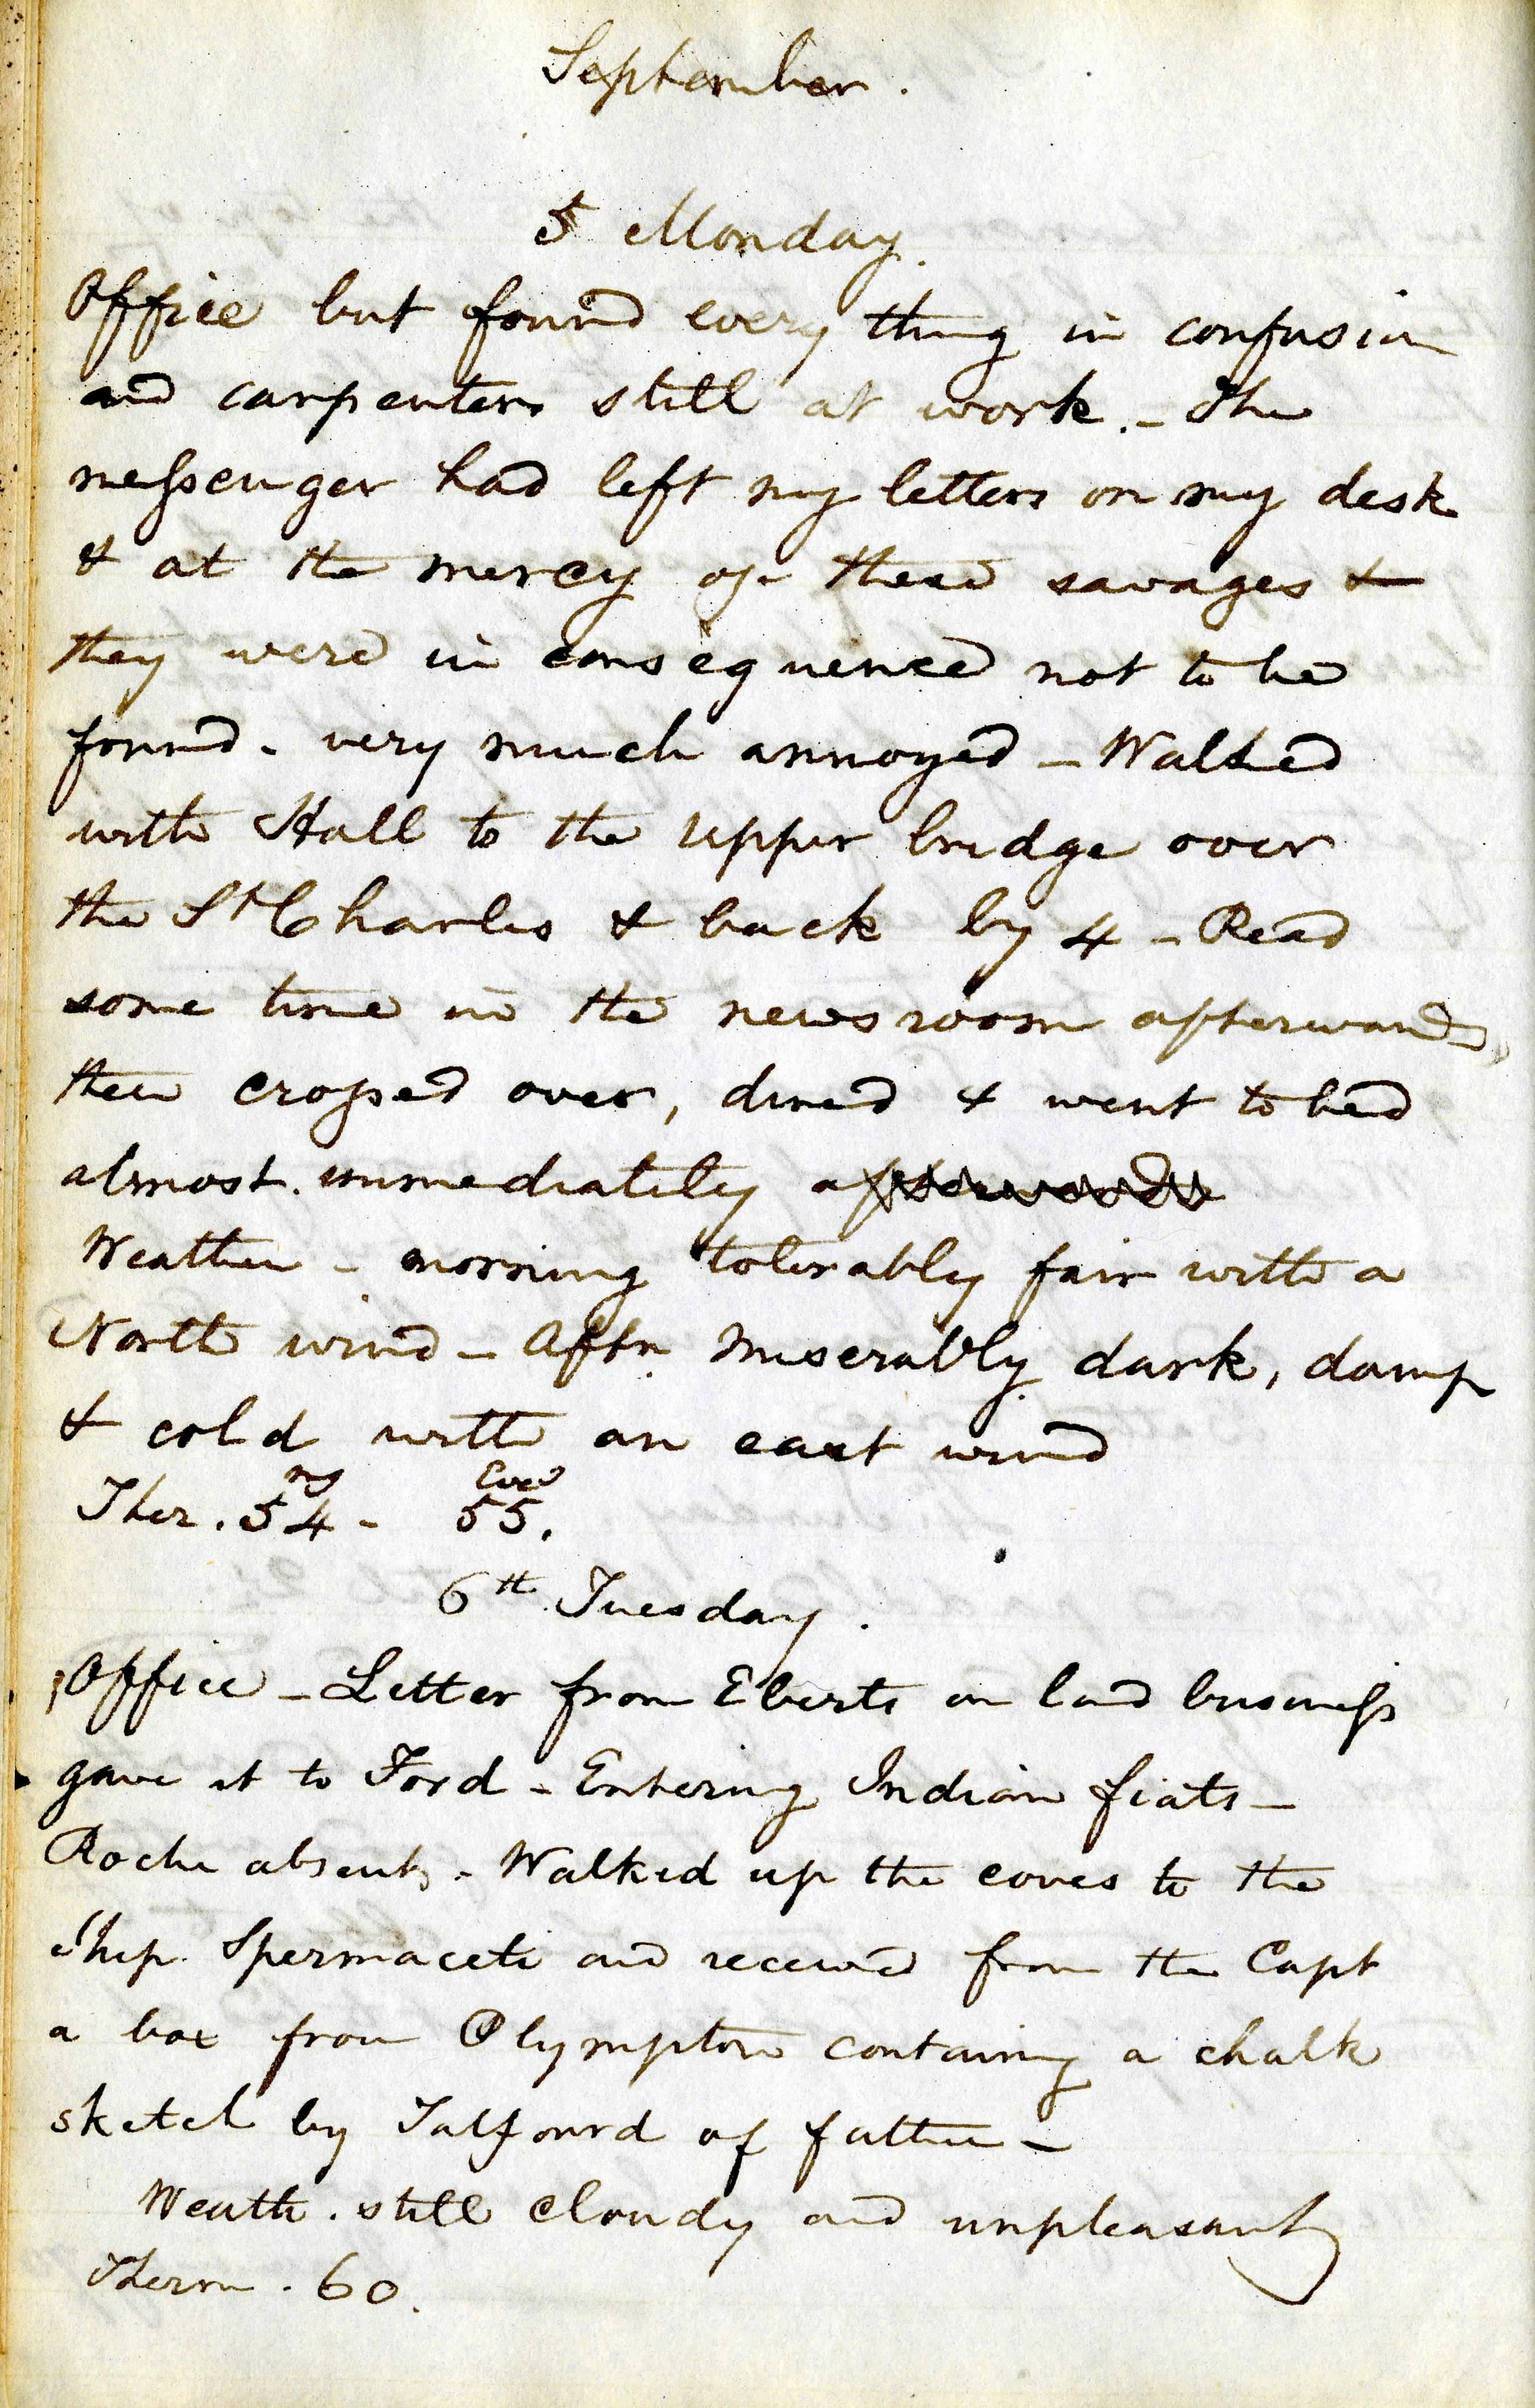 September.
5 Monday.
Office but found every thing in confusion
and carpenters still at work. - The
messenger had left my letters on my desk
& at the mercy of these savages &
they were in consequence not to be
found - very much annoyed - Walked
with Hall to the upper bridge over
the St Charles & back by 4 - Read
some time in the news room afterwards,
then crossed over, dined & went to bed
almost immediately afterwards
Weather - morning tolerably fair with a
North wind - Aftn miserably dark, damp
& cold with an east wind
Ther. 54 mg - 55 Eve.
6th Tuesday.
Office - Letter from Eberts on land business
gave it to Ford - Entering Indian fiats -
Roche absent. - Walked up the coves to the
Ship Spermaceti and received from the Capt
a box from Plympton containing a chalk
sketch by Talfourd of father -
Weath. still cloudy and unpleasant
Therm. 60.